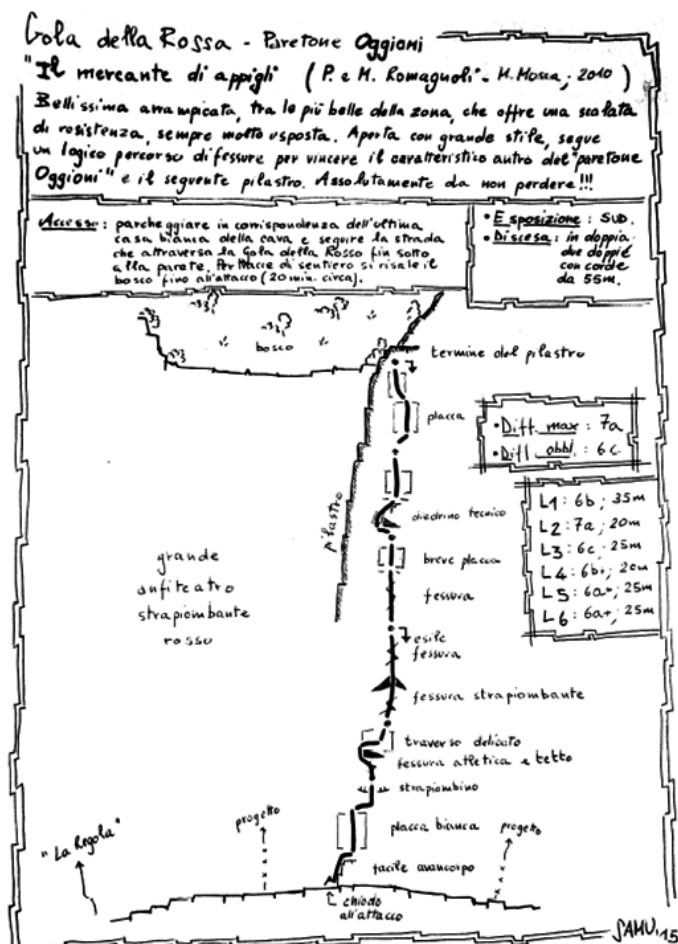 Gola della Rossa - Paretone Oggioni
"Il mercante di appigli" (P. e M. Romagnoli - M. Mosca, 2010)
Bellissima arrampicata, tra le più belle della zona, che offre una scalata
di resistenza, sempre molto esposta. Aperta con grande stile, segue
un logico percorso di fessure per vincere il caratteristico antro del "paretone
Oggioni" e il seguente pilastro. Assolutamente da non perdere!!!
Accesso: parcheggiare in corrispondenza dell'ultima
casa bianca della cava e seguire la strada
che attraversa la Gola della Rossa fin sotto
alla parete. Per tracce di sentiero si risale il
bosco fino all'attacco (20 min. circa).
• Esposizione: SUD.
• Discesa: in doppia.
due doppie
con corde
da 55m.
bosco
termine del pilastro
placca
• Diff. max: 7a
• Diff. obbl.: 6c
pilastro
diedrino tecnico
breve placca
fessura
L1: 6b; 35m
L2: 7a; 20m
L3: 6c; 25m
L4: 6b+; 20m
L5: 6a+; 25m
L6: 6a+; 25m
grande
anfiteatro
strapiombante
rosso
esile
fessura
fessura strapiombante
traverso delicato
fessura atletica e tetto
strapiombino
placca bianca
facile avancorpo
"La Regola"
progetto
progetto
chiodo
all'attacco
SAMU.15